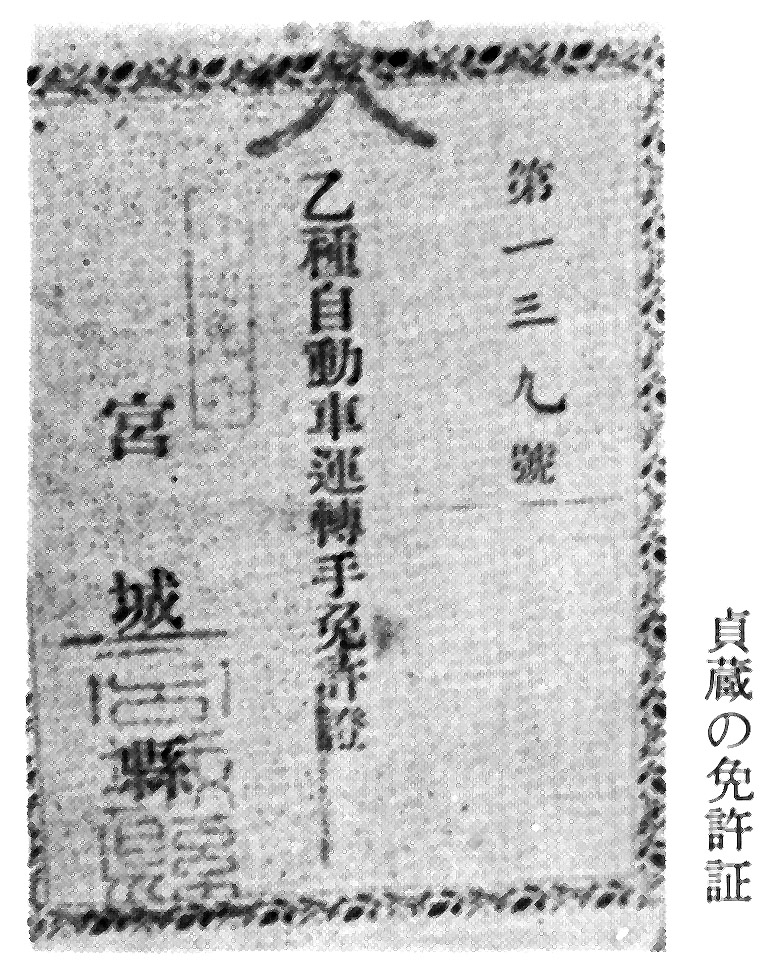 第一三九號
乙種自動車運轉手免許證
宮城縣
貞蔵の免許証